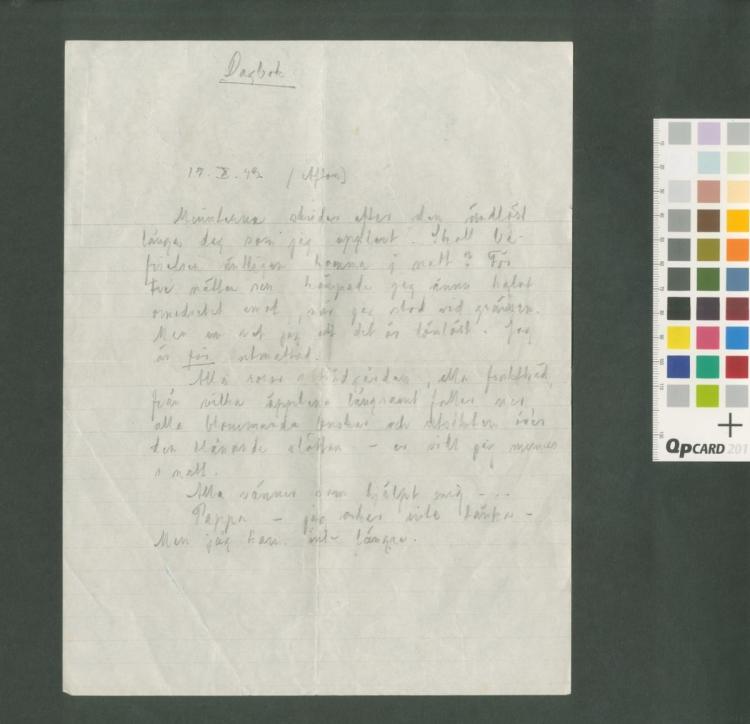 Dagbok
17. X. 42 (Afton)
Minuterna skrider efter den ändlöst
långa dag som jag upplevt. Skall be-
frielsen äntligen komma i natt? För
två nätter sen kämpade jag ännu halvt
omedvetet emot, när jag stod vid gränsen.
Men nu vet jag att det är lönlöst. Jag
är för utmattad.
Alla rosor i trädgården, alla fruktträd,
från vilka äpplena långsamt faller ner,
alla blommande buskar och utsikten över
den blånande slätten – er vill jag minnas
i natt.
Alla vänner som hjälpt mig - - -
Pappa – jag orkar inte tänka –
Men jag kan inte längre.
QPCARD 201